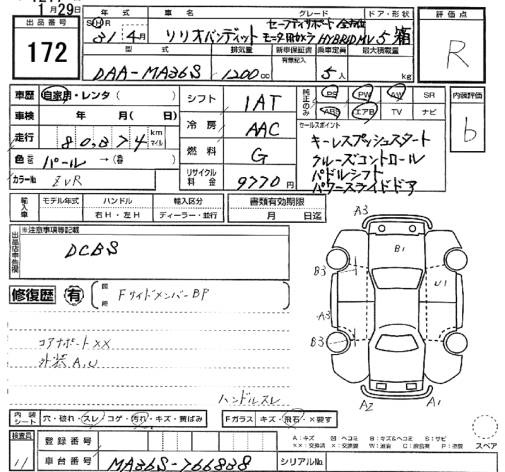 1月29日
出品番号
172
年式
グレード
ドア・形状
評価点
SⒽR
31年4月
ソリオバンディット
セーフティサポート
全方位
モニター用カメラ HYBRID MV
5 箱
R
型式
排気量
新車保証書
有無記入
乗車定員
最大積載量
DAA-MA36S
1200cc
5人
kg
車歴
自家用・レンタ( )
車検
年 月( 日)
走行
80,374
km
マイル
色
パール →( )
カラーNo
ZVR
シフト
1AT
冷房
AAC
燃料
G
リサイクル料金
9770円
純正のみ
PS PW AW SR
ABS エアB TV ナビ
セールスポイント
キーレスプッシュスタート
クルーズコントロール
パドルシフト
パワースライドドア
内装評価
b
輸入車
モデル年式
ハンドル
右H・左H
輸入区分
ディーラー・並行
書類有効期限
月 日迄
※注意事項等記載
DCBS
修復歴
有
箇所
FサイドメンバーBP
コアサポートXX
外装A,U
ハンドルスレ
A3
B1
B3
U1
A3
B3
A2
A1
内装シート
穴・破れ・スレ コゲ・汚れ・キズ・黄ばみ
Fガラス キズ・飛石・X要す
検査員
11
登録番号
車台番号
MA36S-766838
シリアルNo
A:キズ U:ヘコミ B:キズ&ヘコミ S:サビ
スペア